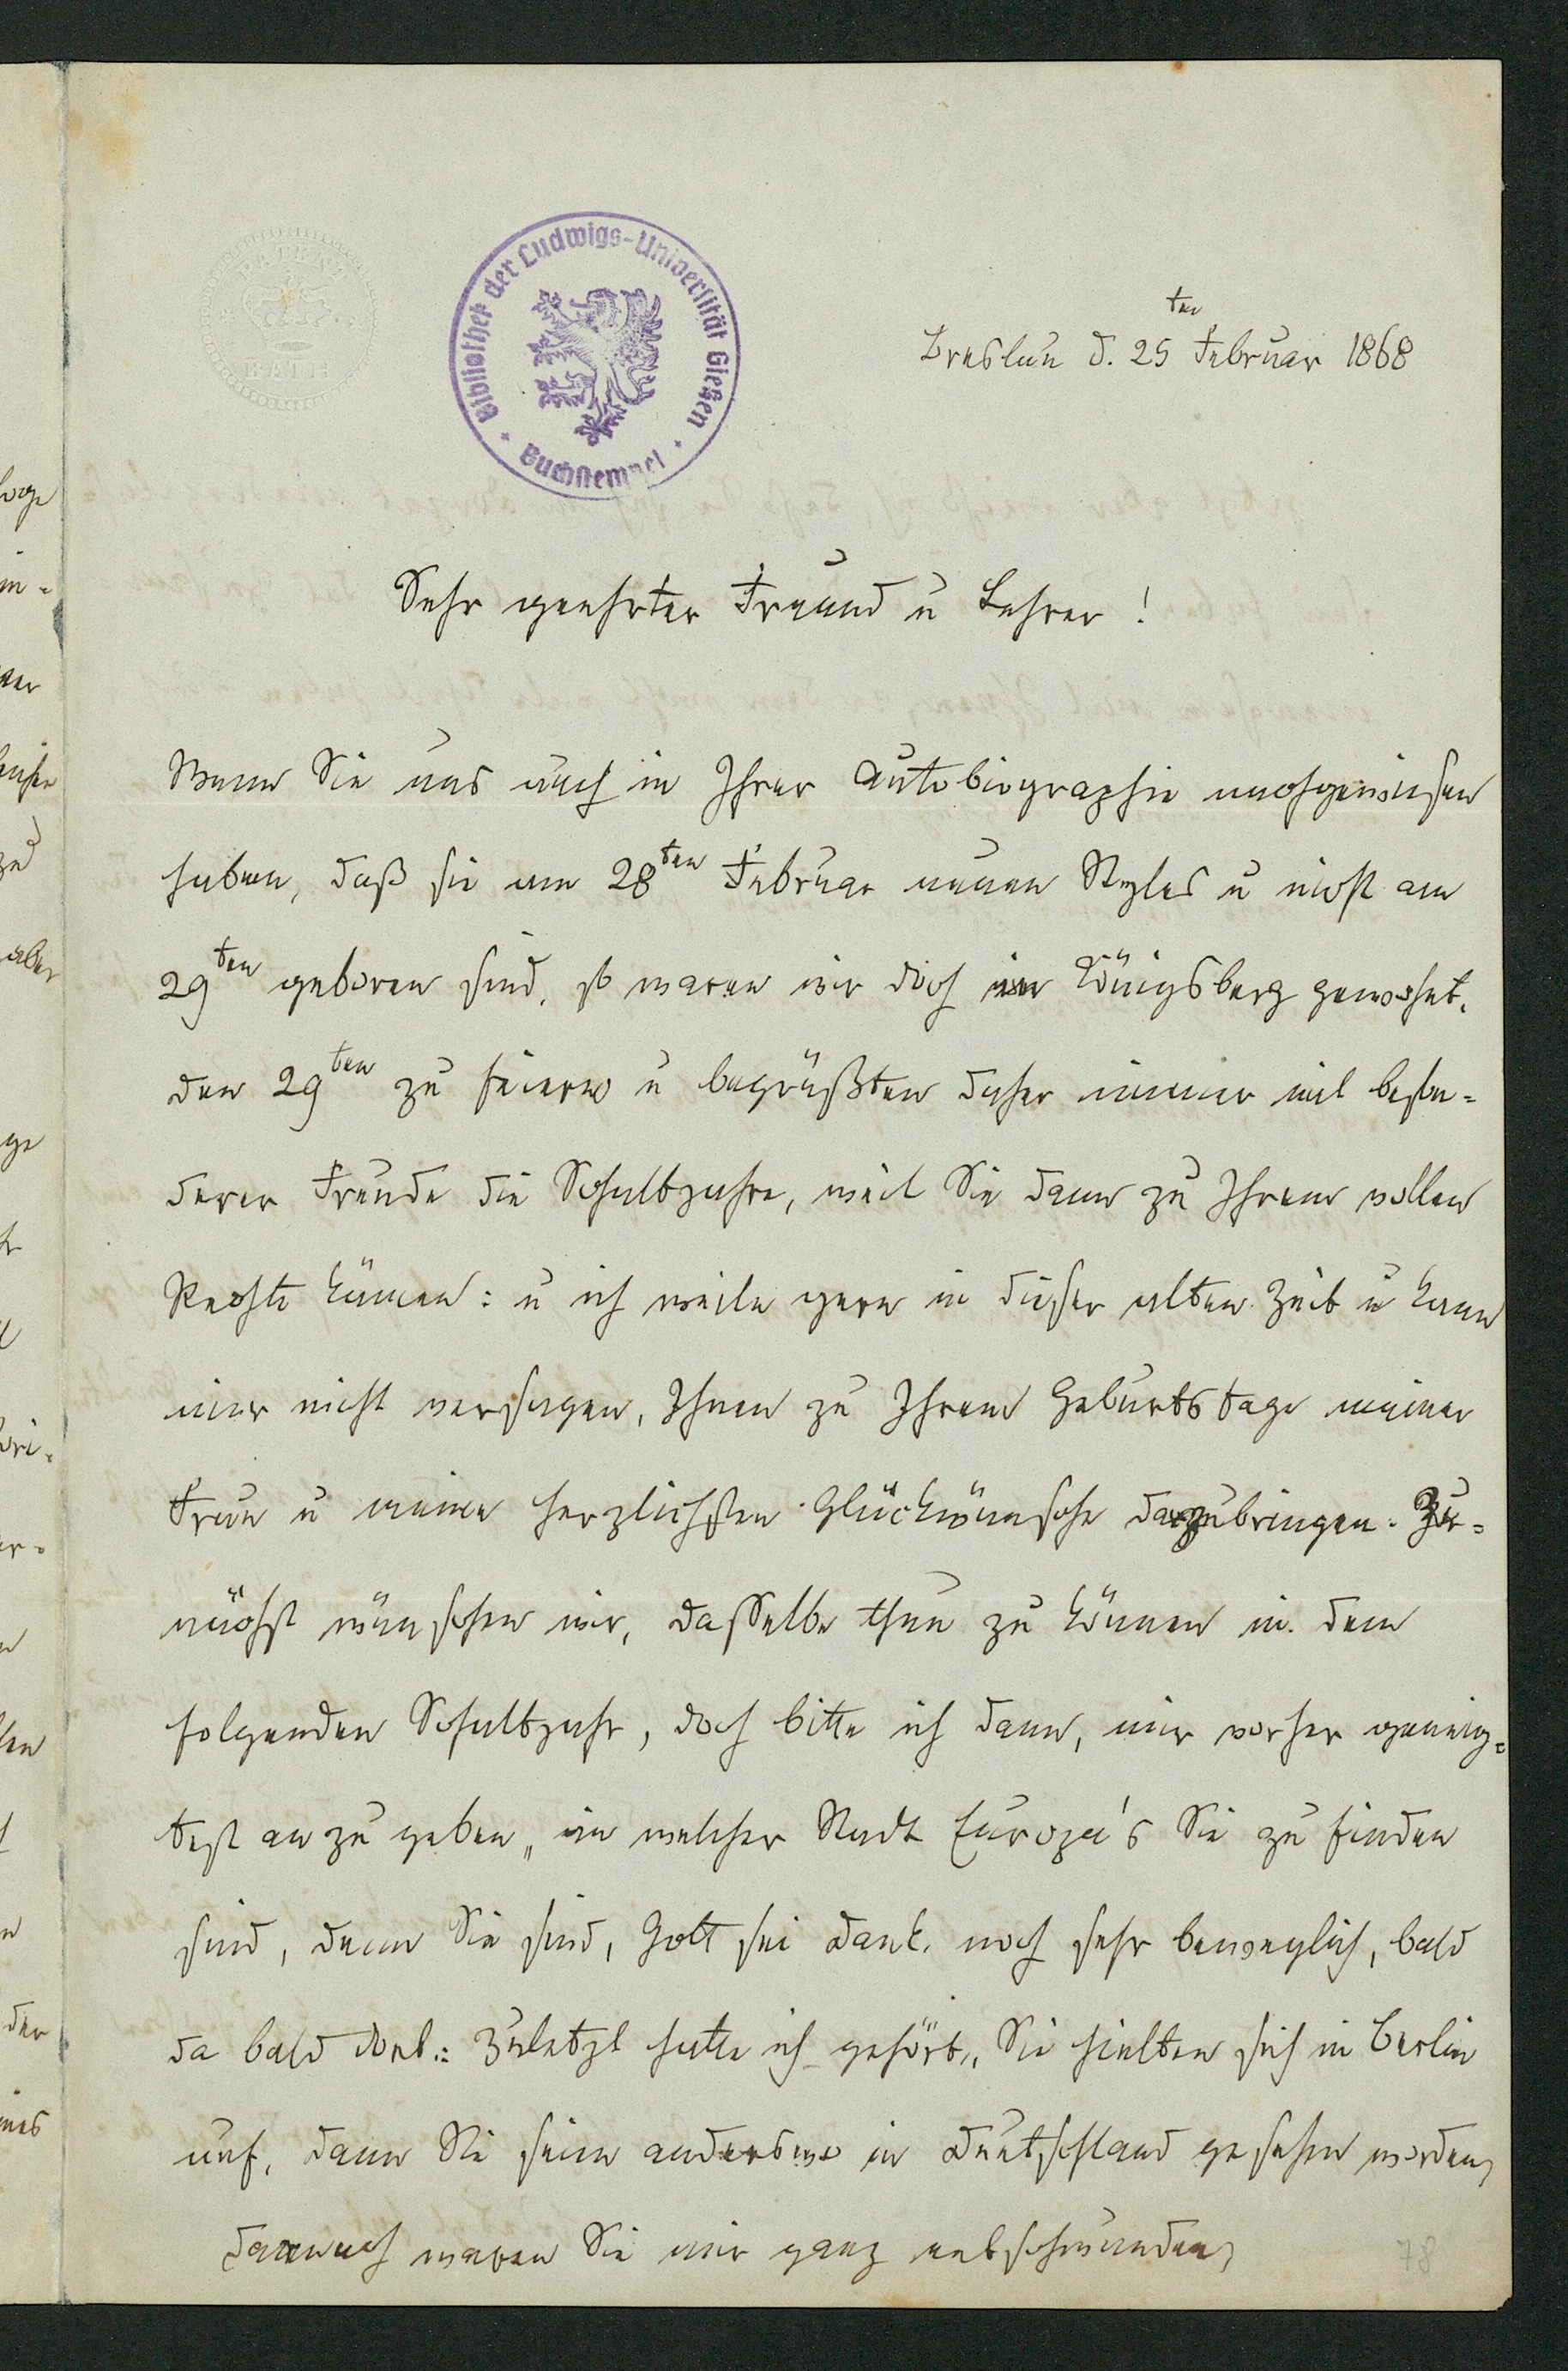 PATENT
BATHS
Bibliothek der Ludwigs-Universität Gießen
Buchstempel
Breslau d. 25ten Februar 1868
Sehr geehrter Freund u Lehrer!
Wenn Sie uns auch in Ihrer Autobiographie nachgewiesen
haben, daß sie am 28ten Februar neuen Styles u nicht am
29ten geboren sind, so waren wir doch in Königsberg gewohnt,
den 29ten zu feiern u begrüßten daher immer mit beson-
derer Freude die Schaltjahre, weil Sie dann zu Ihrem vollen
Rechte kämen: u ich weile gern in dieser alten Zeit u kann
mir nicht versagen, Ihnen zu Ihrem Geburtstage meinen
Freun u meine herzlichsten Glückwünsche darzubringen. Zu-
nächst wünschen wir, dasselbe thun zu können in dem
folgenden Schaltjahr, doch bitte ich dann, mir vorher geneig-
test anzugeben, in welcher Stadt Europa's Sie zu finden
sind, denn Sie sind, Gott sei Dank, noch sehr beweglich, bald
da bald dort: Zuletzt hatte ich gehört, Sie hielten sich in Berlin
auf, dann Sie seien anderswo in Deutschland gesehen worden,
danach waren Sie mir ganz entschwunden,
78